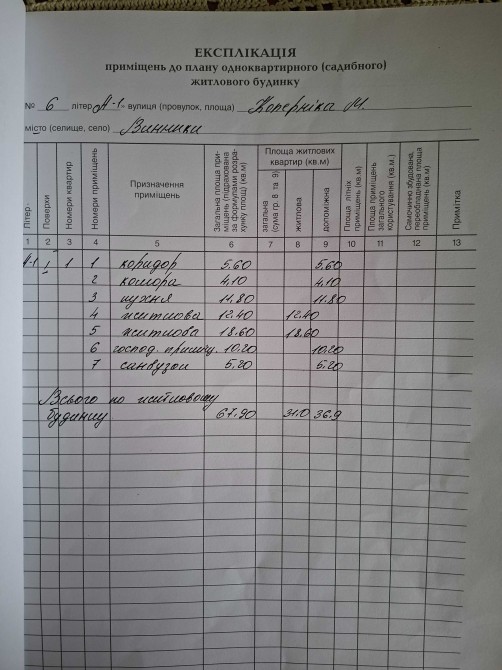 ЕКСПЛІКАЦІЯ
приміщень до плану одноквартирного (садибного)
житлового будинку
№ 6 літер А-1 вулиця (провулок, площа) Коперніка М.
місто (селище, село) Винники
Літер
Поверхи
Номери квартир
Номери приміщень
Призначення приміщень
Загальна площа приміщень (підрахована за формулами розрахунку площ) (кв.м)
Площа житлових квартир (кв.м)
загальна (сума гр. 8 та 9)
житлова
допоміжна
Площа літніх приміщень (кв.м)
Площа приміщень загального користування (кв.м.)
Самочинно збудована, переобладнана площа приміщень (кв.м)
Примітка
1 2 3 4 5 6 7 8 9 10 11 12 13
А-1 1 1 1 коридор 5.60 5.60
2 комора 4.10 4.10
3 кухня 11.80 11.80
4 житлова 12.40 12.40
5 житлова 18.60 18.60
6 господ. приміщ. 10.20 10.20
7 санвузол 5.20 5.20
Всього по житловому
будинку 67.90 31.0 36.9